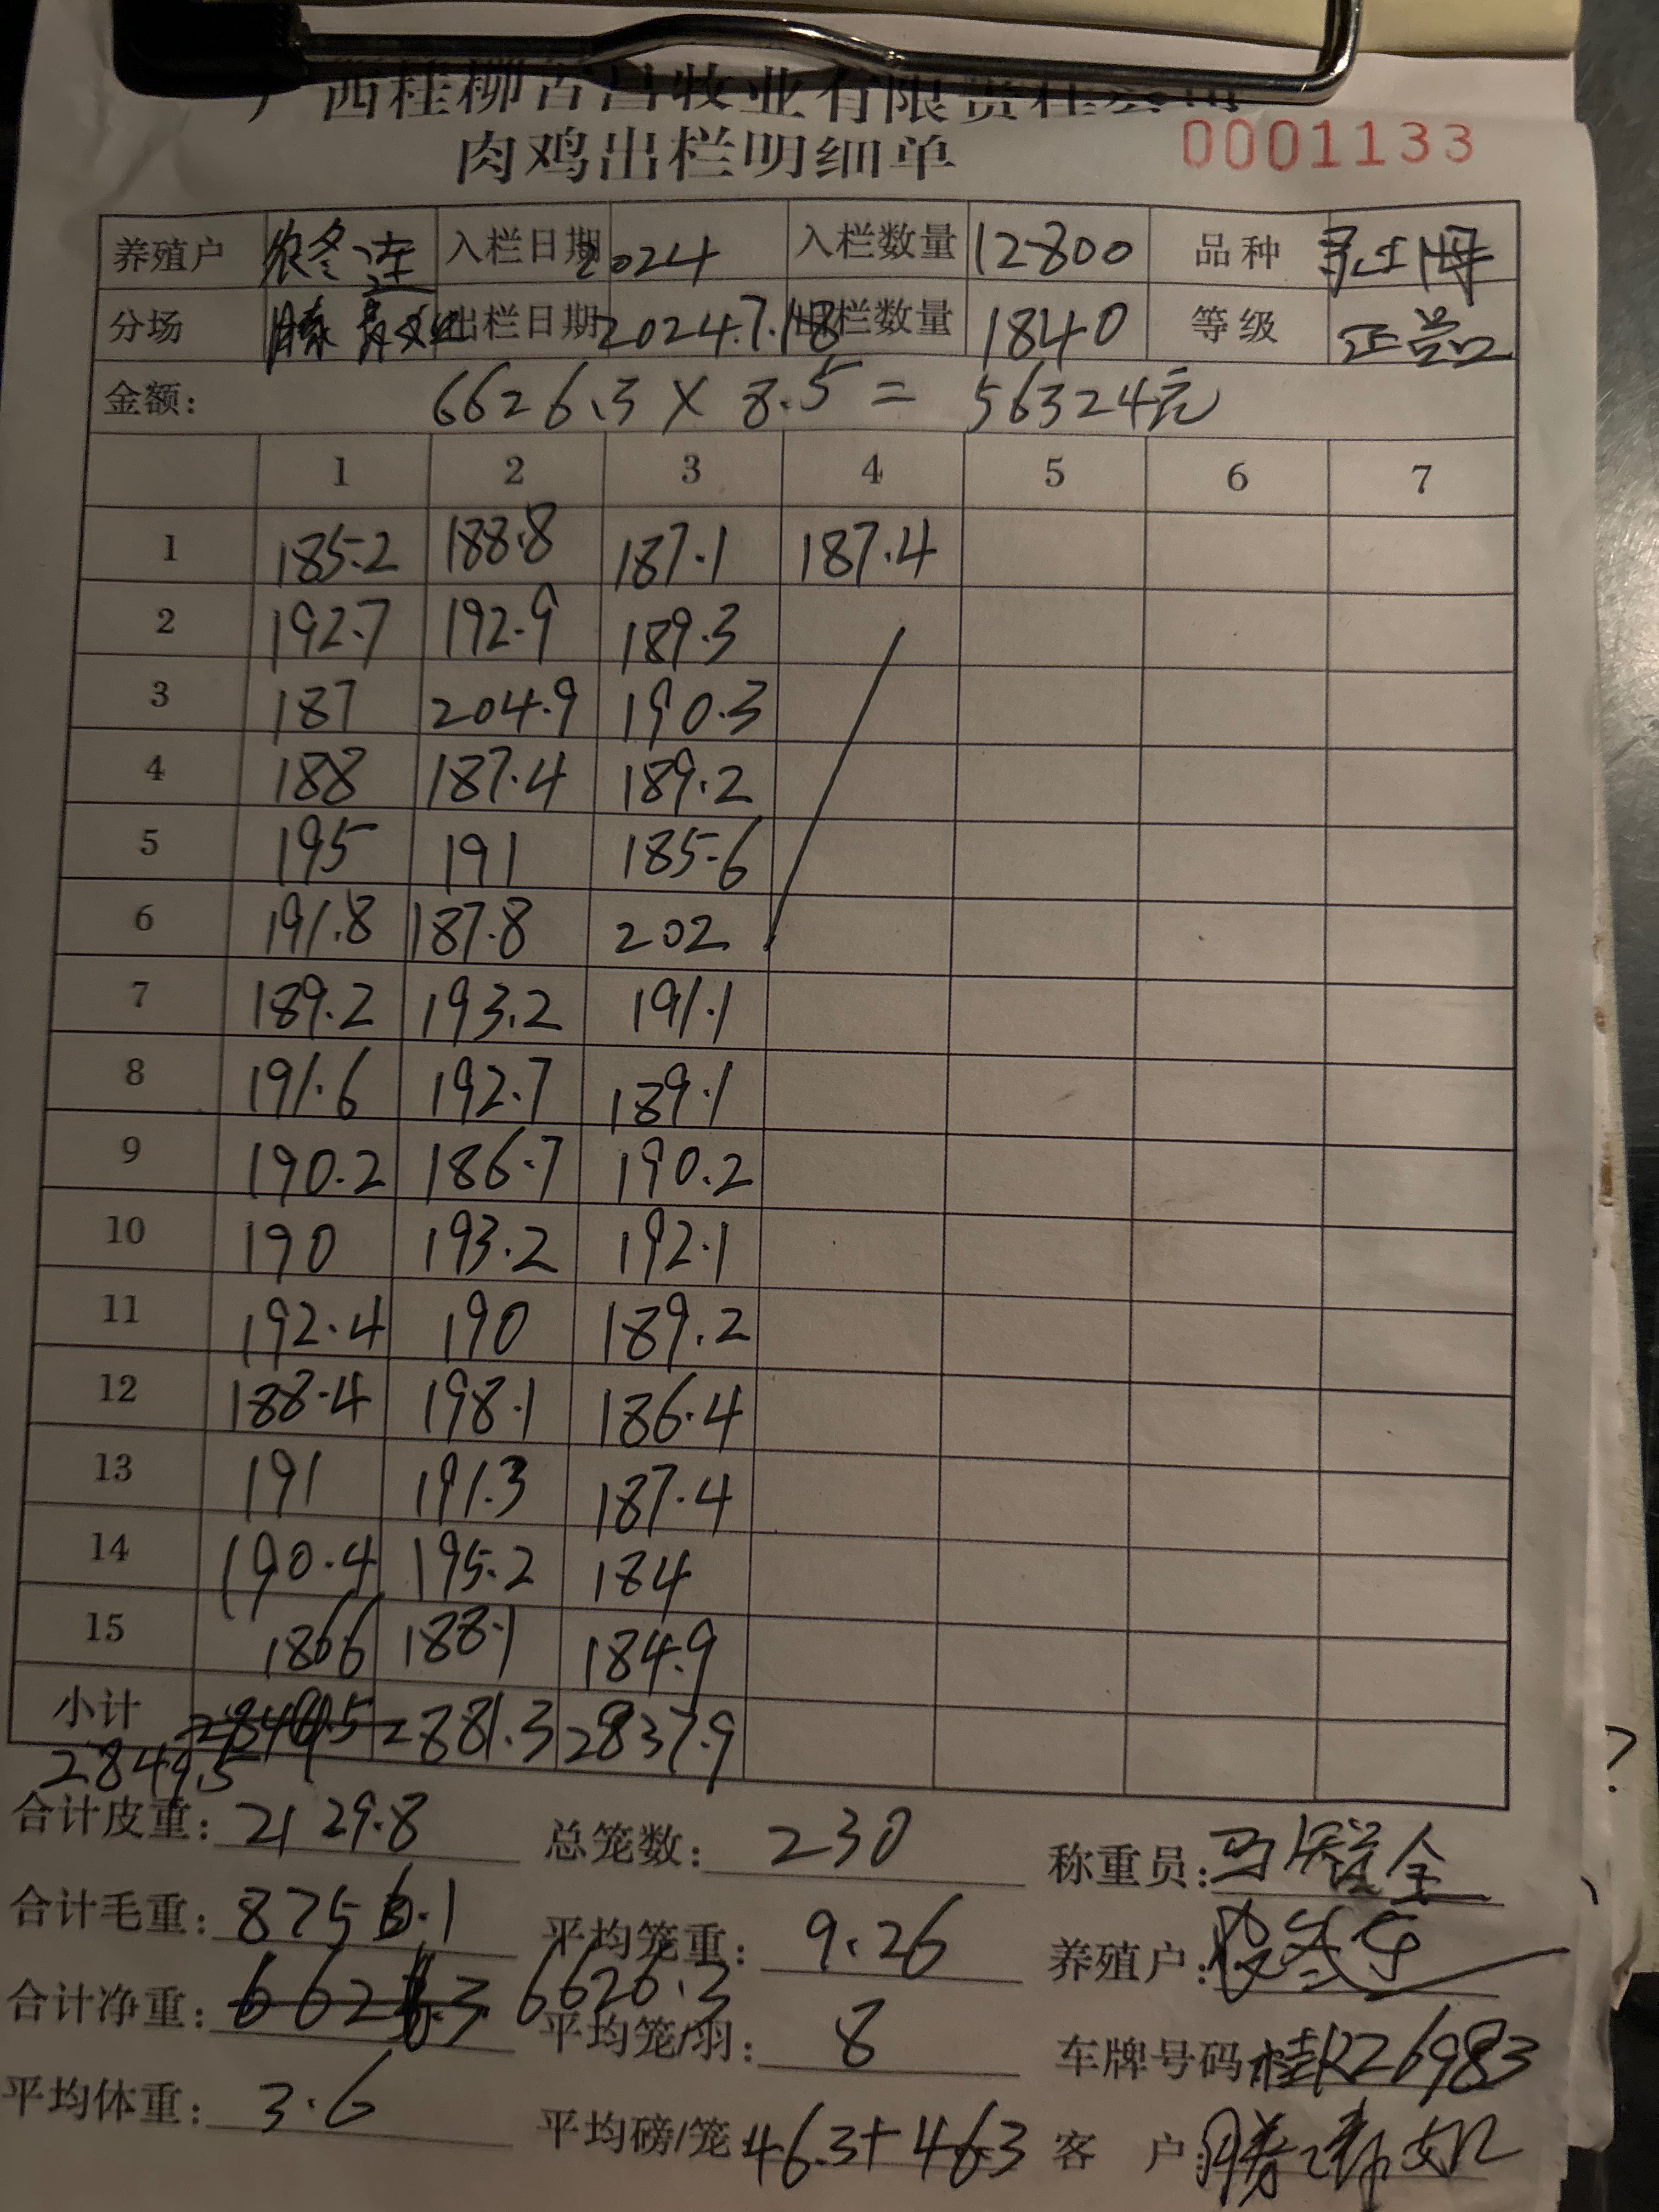 广西桂柳百昌牧业有限责任公司
肉鸡出栏明细单 0001133
养殖户 农冬连 入栏日期 2024 入栏数量 12800 品种
分场 出栏日期 2024.7.18 出栏数量 1840 等级 正品
金额: 6626.3 × 8.5 = 56324元
1 2 3 4 5 6 7
1 185.2 188.8 187.1 187.4
2 192.7 192.9 189.3
3 187 204.9 190.3
4 188 187.4 189.2
5 195 191 185.6
6 191.8 187.8 202
7 189.2 193.2 191.1
8 191.6 192.7 189.1
9 190.2 186.7 190.2
10 190 193.2 192.1
11 192.4 190 189.2
12 188.4 198.1 186.4
13 191 191.3 187.4
14 190.4 195.2 184
15 186.6 188.1 184.9
小计 2881.3 2837.9
2849.5
合计皮重: 2129.8 总笼数: 230 称重员:
合计毛重: 8756.1 平均笼重: 9.26 养殖户:
合计净重: 6626.3 6626.3 平均笼/羽: 8 车牌号码 桂R26983
平均体重: 3.6 平均磅/笼 46.3+463 客 户: